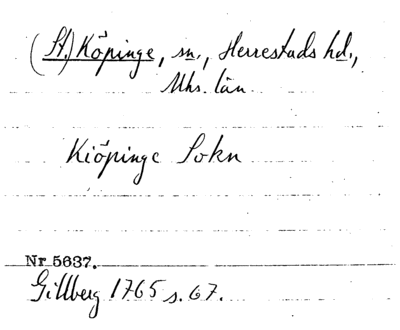 (St.) Köpinge, sn., Herrestads hd.,
Mhs. län
Kiöpinge Sokn
Nr 5637.
Gillberg 1765 s. 67.